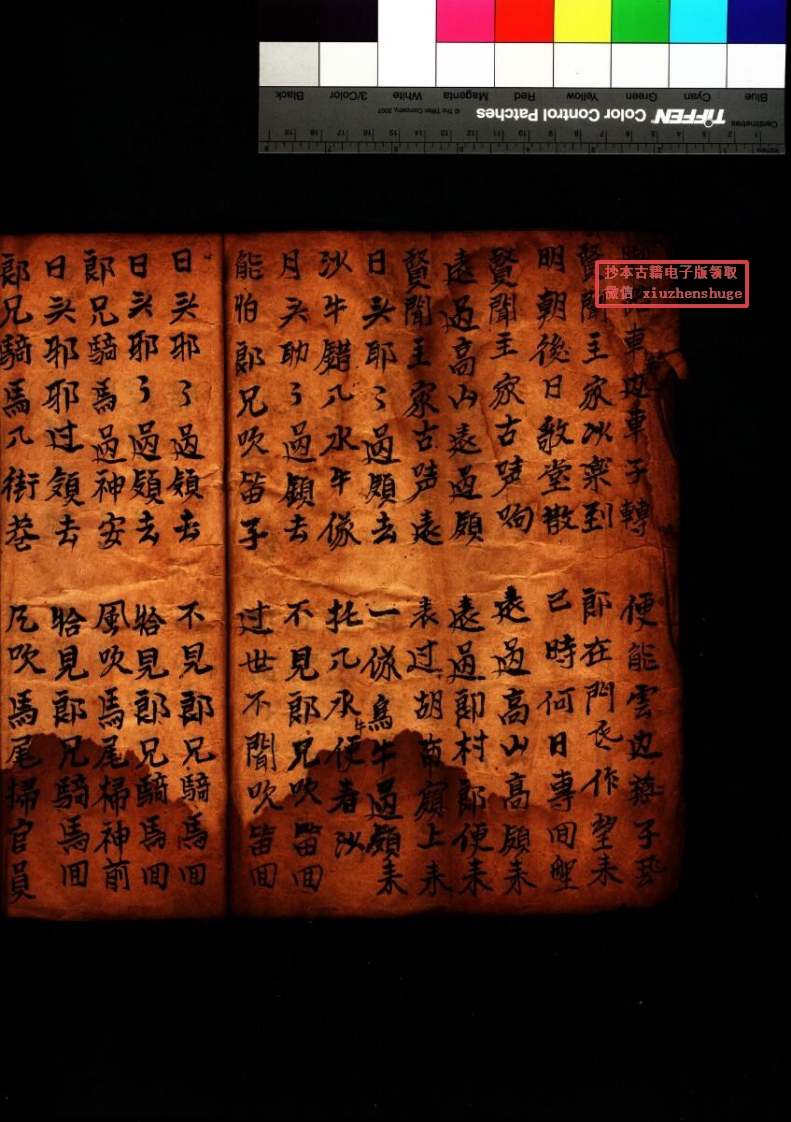 Blue Cyan Green Yellow Red Magenta White 3/Color Black
TIFFEN Color Control Patches © The Tiffen Company, 2007
Centimetres
Inches
抄本古籍电子版领取
微信 xiuzhenshuge
車边車子轉 便能雲边
賢聞主家氿樂到 郎在門 作 來
明朝後日敢堂散 已時何日專回
賢聞主家古声响 透過高山高頋来
遠過高山遠過頋 遠過郎村郎便来
賢聞主家古声遠 表过胡南 上来
日头耶〻過頋去 一㑰烏牛過頋来
沙牛錯几水牛㑰 托几水牛便者沙
月头助〻過頋去 不見郎兄吹笛回
能怕郎兄吹笛子 过世不聞吹笛回
日头邪〻過頋去 不見郎兄騎馬回
日头邪〻過頋去 恰見郎兄騎馬回
郎兄騎馬過神安 風吹馬尾掃神前
日头耶耶过領去 恰見郎兄騎馬回
郎兄騎馬几街巷 風吹馬尾掃官員